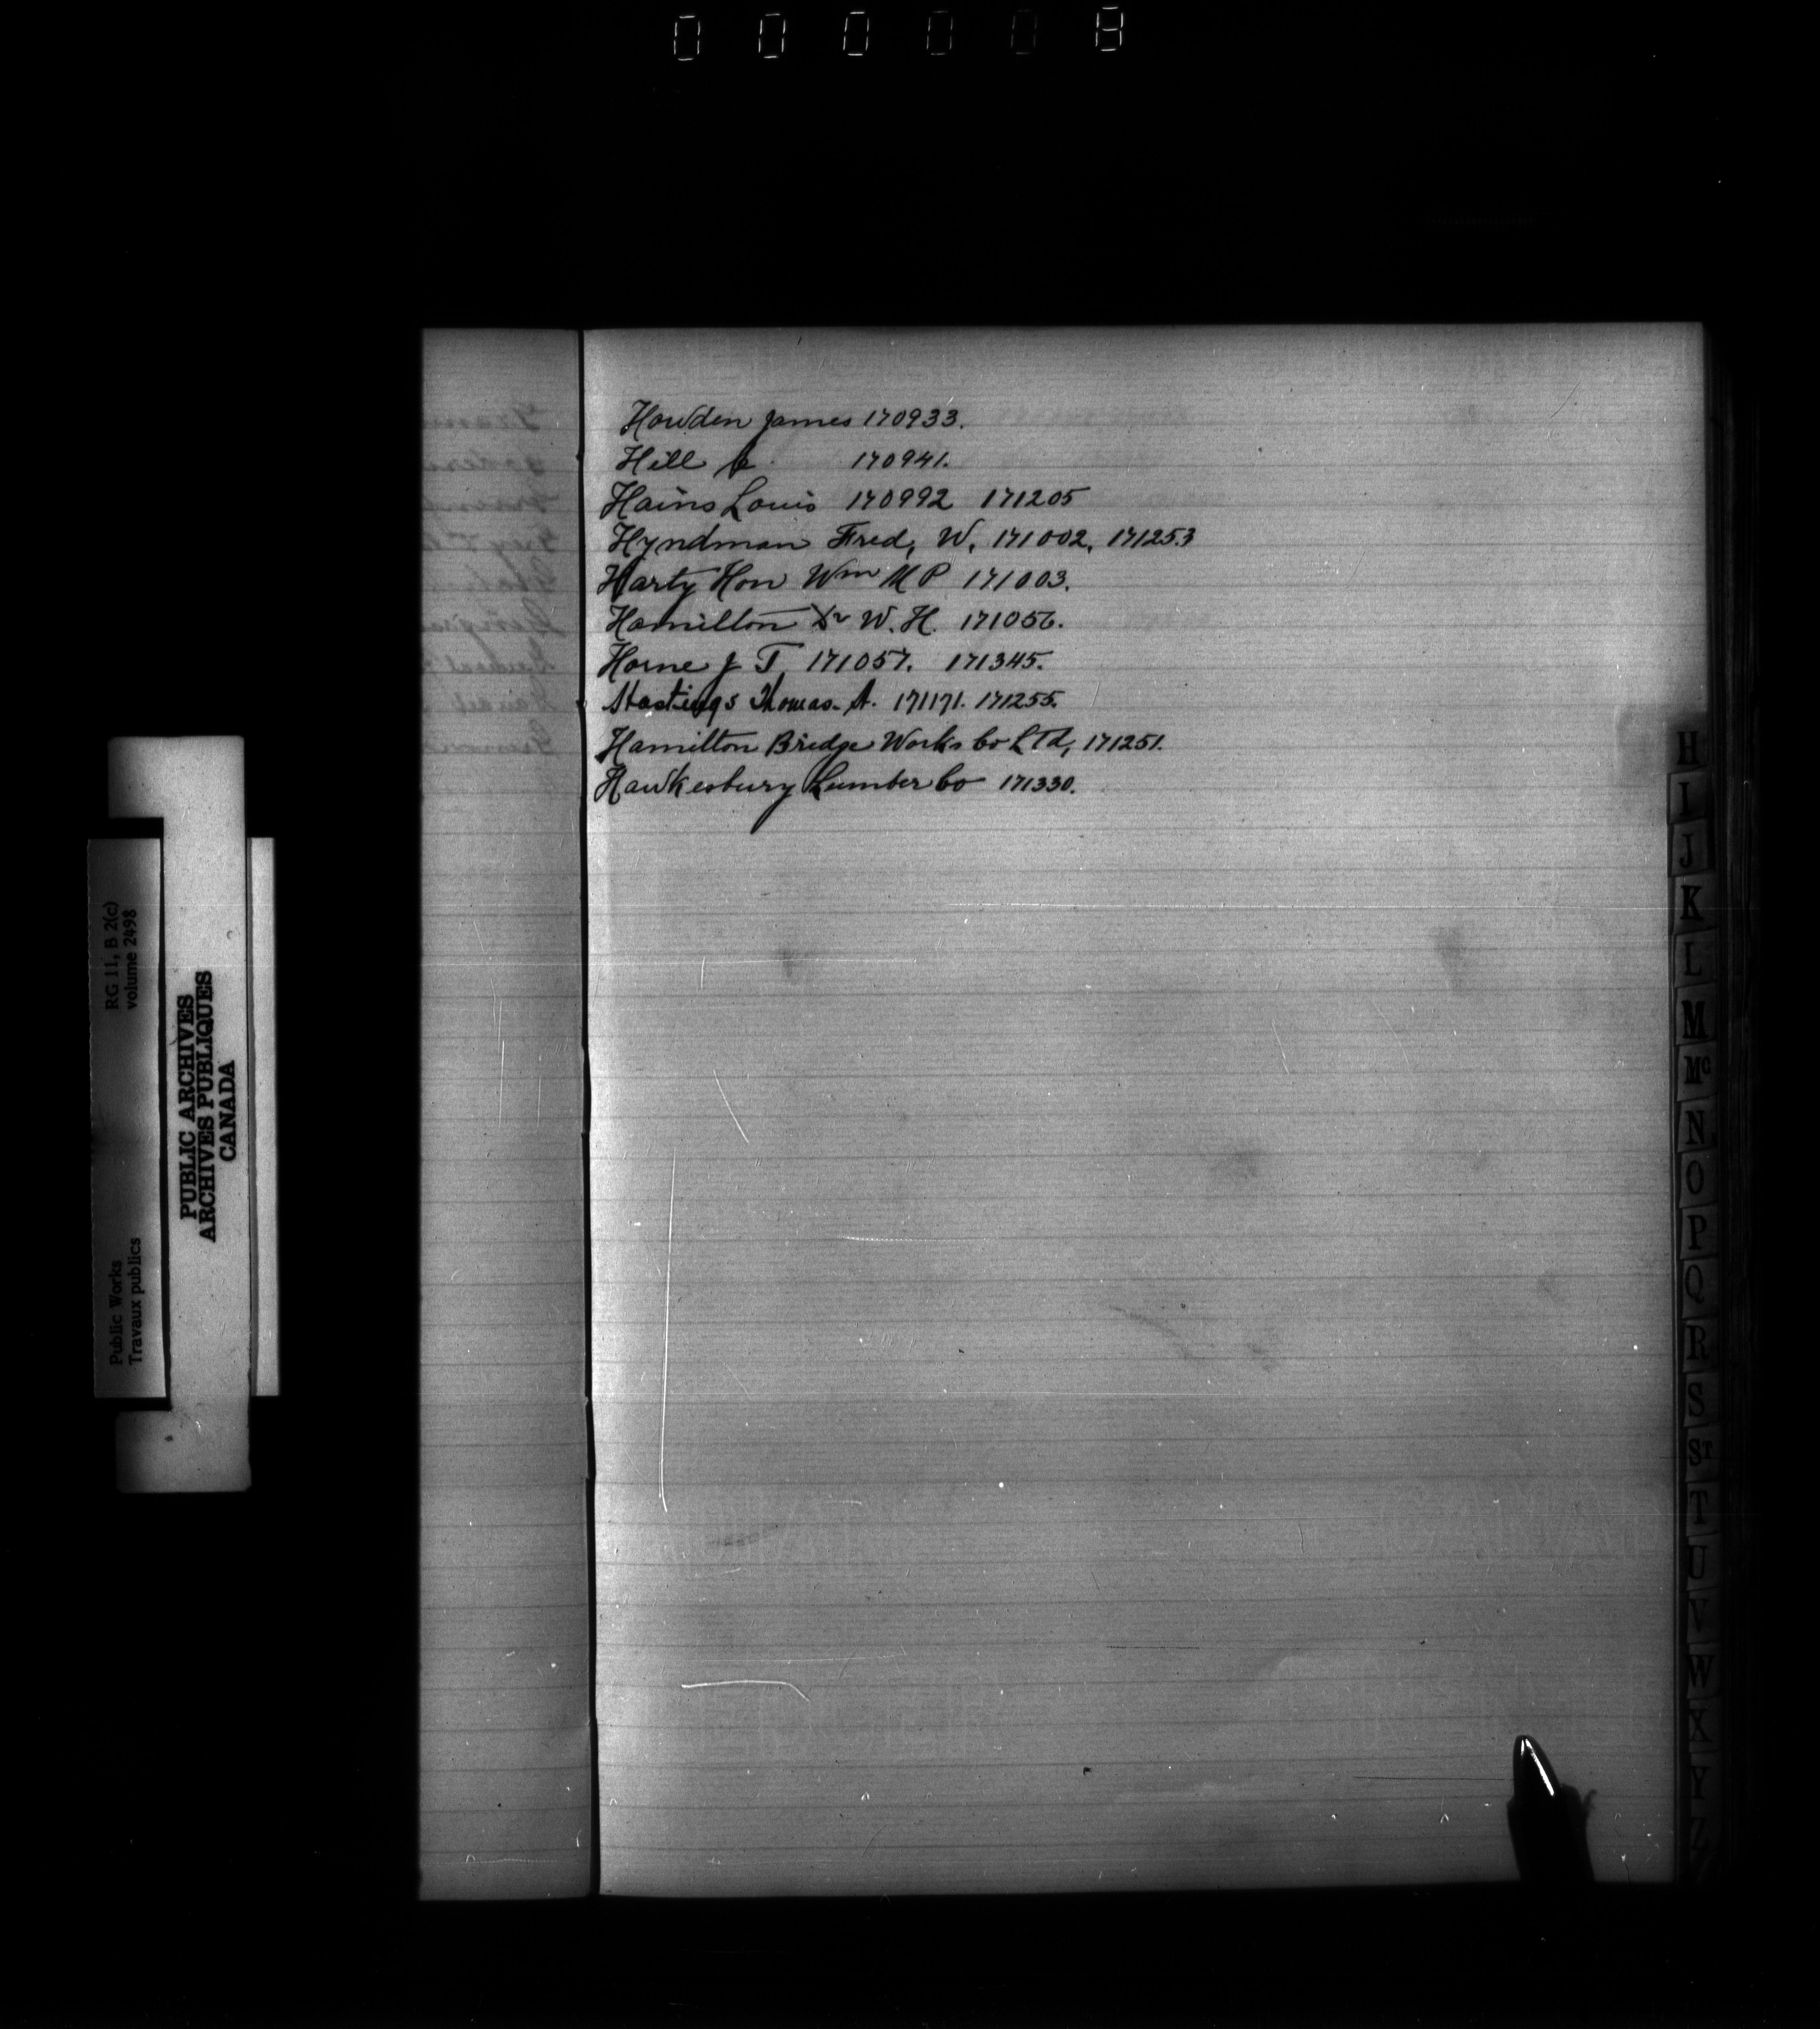 000008
Howden James 170933.
Hill C. 170941.
Hains Louis 170992 171205
Hyndman Fred, W, 171002, 171253
Harty Hon Wm M P 171003.
Hamilton W. H. 171056.
Horne J T, 171057. 171345.
Hastings Thomas. A. 171171. 171255.
Hamilton Bridge Works Co Ltd, 171251.
Hawkesbury Lumber Co 171330.
H
I
J
K
L
M
Mc
N
O
P
Q
R
S
ST
T
U
V
W
X
Y
Z
RG 11, B 2(c)
volume 2498
Public Works
Travaux publics
PUBLIC ARCHIVES
ARCHIVES PUBLIQUES
CANADA